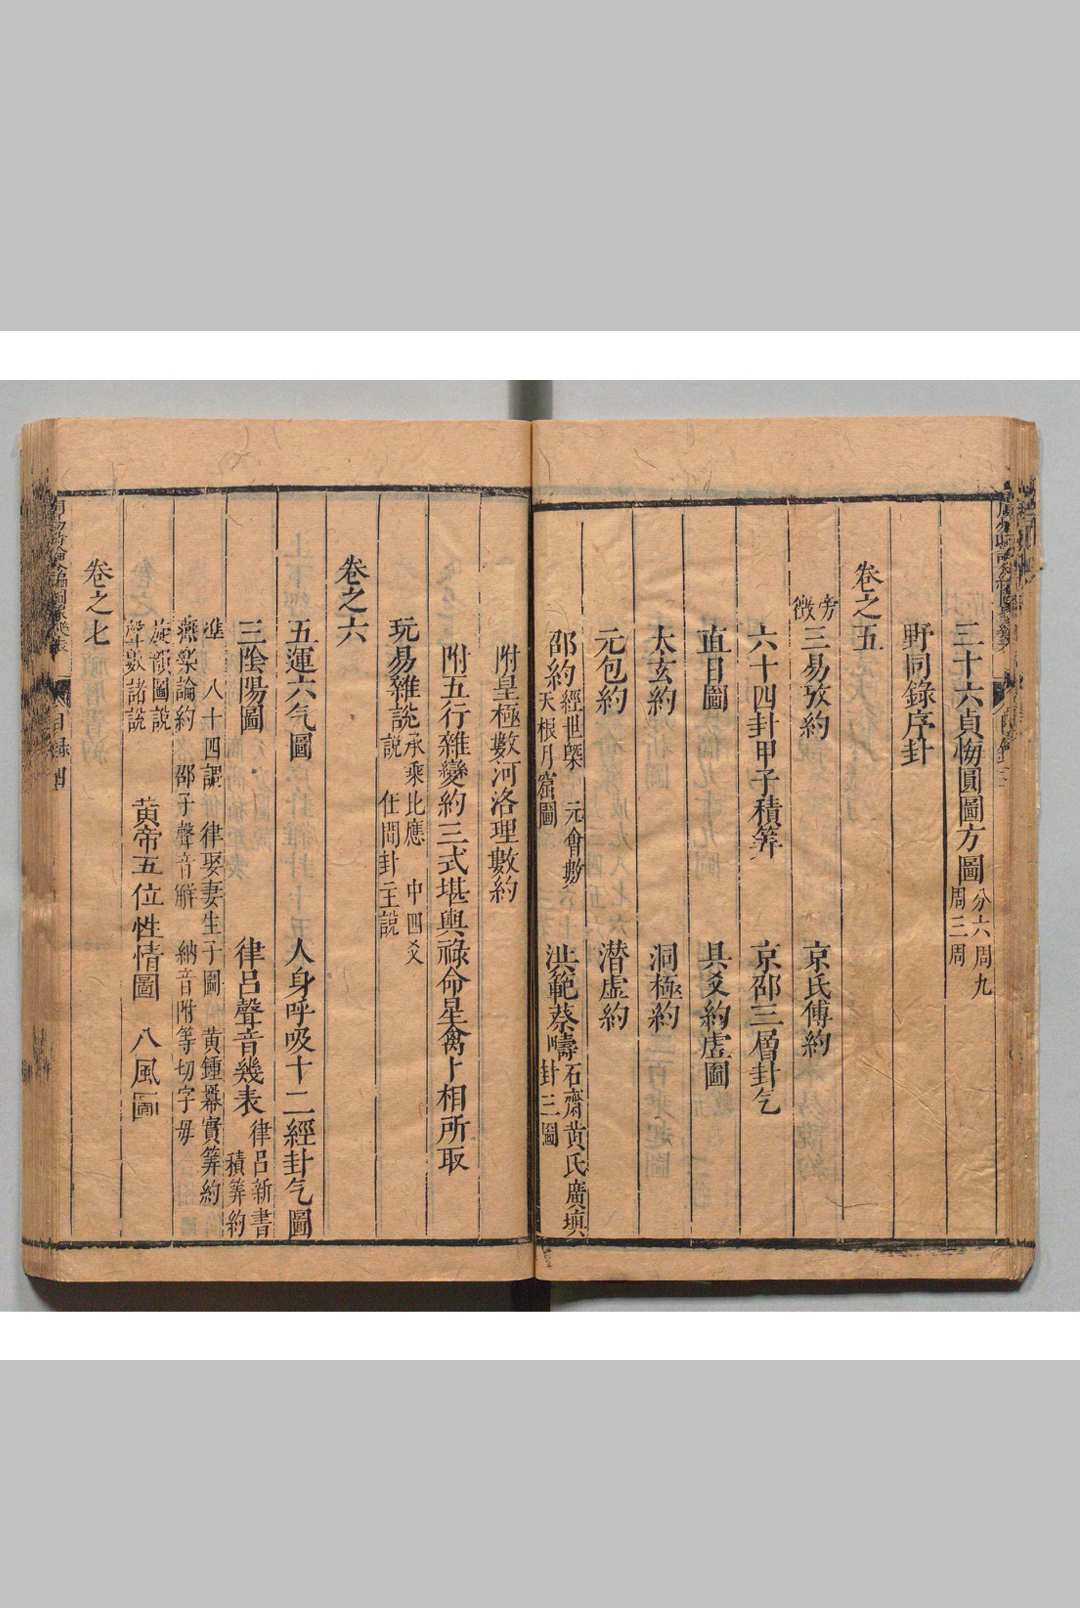 三十六貞悔圓圖方圖分六周九
周三周
野同錄序卦
卷之五
旁徵三易攷約 京氏傳約
六十四卦甲子積筭 京邵三層卦气
直日圖 具爻約虛圖
太玄約 洞極約
元包約 潛虛約
邵約經世槩 元會數
天根月窟圖
洪範蔡疇石齋黄氏廣塡
卦三圖
附皇極數河洛理數約
附五行雜變約三式堪輿祿命星禽卜相所取
玩易雜說承乘比應 中四爻
說 任間卦主說
卷之六
五運六气圖 人身呼吸十二經卦气圖
三陰陽圖 律呂聲音幾表律呂新書
積筭約
準 八十四調 律娶妻生子圖 黄鍾冪實筭約
燕樂論約 邵子聲音解 納音附等切字母
旋韻圖說
聲數諸說
黄帝五位性情圖 八風圖
卷之七
目錄 四